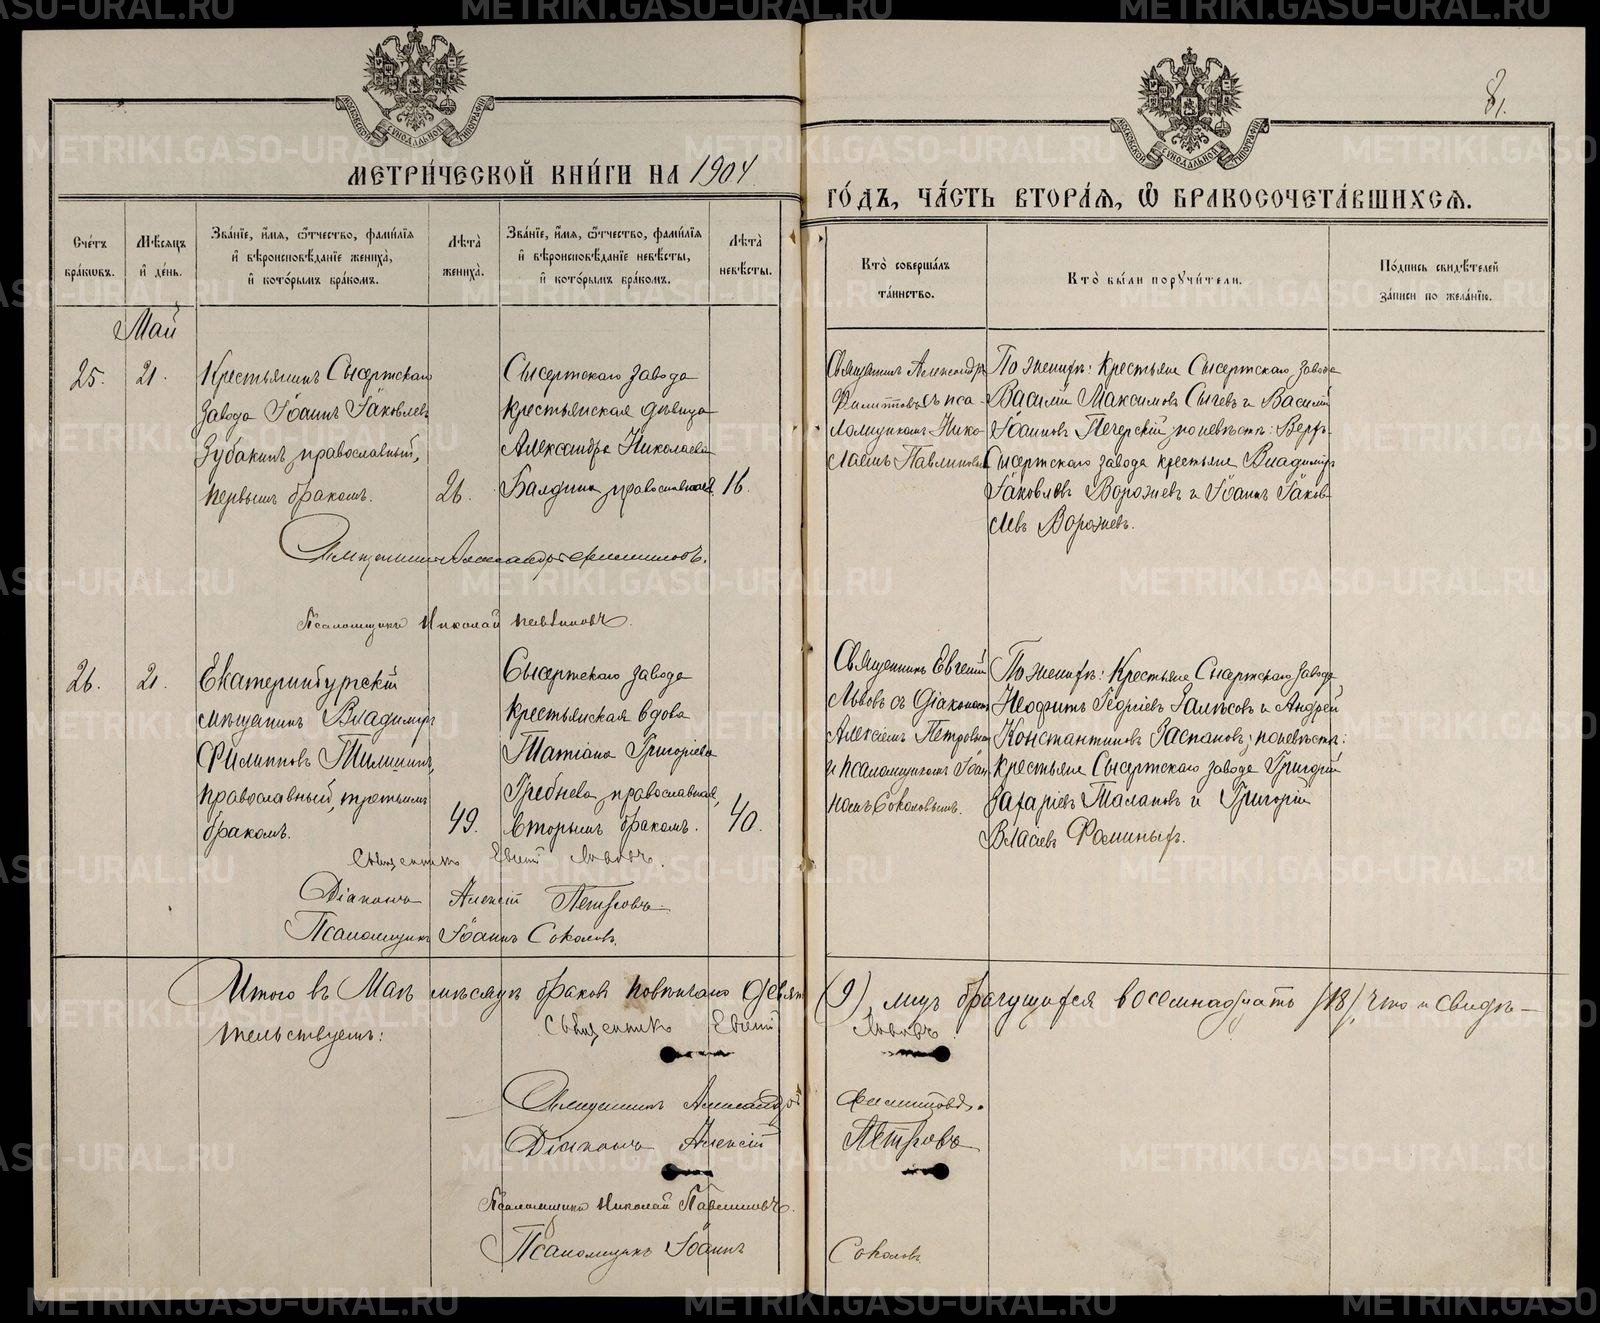 МЕТРИ́ЧЕСКОЙ КНИ́ГИ НА 1904
ГО́ДЪ, ЧА́СТЬ ВТОРА́Я, Ѽ БРАКОСОЧЕТА́ВШИХСЯ.
81.
Сче́тъ
бра́ковъ.
Мѣ́сяцъ
и҆ де́нь.
Зва́нїе, и҆́мя, ѻ҆́тчество, фами́лїя
и҆ вѣроисповѣ́данїе жениха̀,
и҆ кото́рымъ бра́комъ.
Лѣта̀
жениха̀.
Зва́нїе, и҆́мя, ѻ҆́тчество, фами́лїя
и҆ вѣроисповѣ́данїе невѣ́сты,
и҆ кото́рымъ бра́комъ.
Лѣта̀
невѣ́сты.
Кто̀ соверша́лъ
та́инство.
Кто̀ бы́ли поручи́тели.
По́дпись свидѣ́телей
за́писи по жела́нїю.
Май
25.
21.
Крестьянинъ Сысертскаго
завода Іоаннъ Іаковлевъ
Зубакинъ, православный,
первымъ бракомъ.
26.
Сысертскаго завода
крестьянская дѣвица
Александра Николаева
православная.
16.
Священникъ Александръ
Филипповъ съ пса-
ломщикомъ Нико-
лаемъ Павлиновымъ
По женихѣ: Крестьяне Сысертскаго завода
Василій Максимовъ Сычевъ и Василій
Іоанновъ Печерскій; по невѣстѣ: Верх-
Сысертскаго завода крестьяне Владиміръ
Іаковлевъ Ворожевъ и Іоаннъ Іаков-
левъ Ворожевъ.
Священникъ Александръ Филипповъ.
Псаломщикъ Николай Павлиновъ.
26.
21.
Екатеринбургскій
мѣщанинъ Владиміръ
Филипповъ
православный, третьимъ
бракомъ.
49.
Сысертскаго завода
крестьянская вдова
Татіана Григоріева
Гребнева, православная,
вторымъ бракомъ.
40.
Священникъ Евгеній
Львовъ съ діакономъ
Алексіемъ Петровымъ
и псаломщикомъ Іоан-
номъ Соколовымъ.
По женихѣ: Крестьяне Сысертскаго завода
Неофитъ Георгіевъ и Андрей
Константиновъ Заспановъ; по невѣстѣ:
крестьяне Сысертскаго завода Григорій
Захаріевъ Талановъ и Григорій
Власіевъ Фоминыхъ.
Священникъ Евгеній Львовъ.
Діаконъ Алексій Петровъ.
Псаломщикъ Іоаннъ Соколовъ.
Итого въ Маѣ мѣсяцѣ браковъ повѣнчано девять (9), лицъ брачущихся восемнадцать (18), что и свидѣ-
тельствуемъ:
Священникъ Евгеній Львовъ.
Священникъ Александръ Филипповъ.
Діаконъ Алексій Петровъ
Псаломщикъ Николай Павлиновъ.
Псаломщикъ Іоаннъ Соколовъ
METRIKI.GASO-URAL.RU